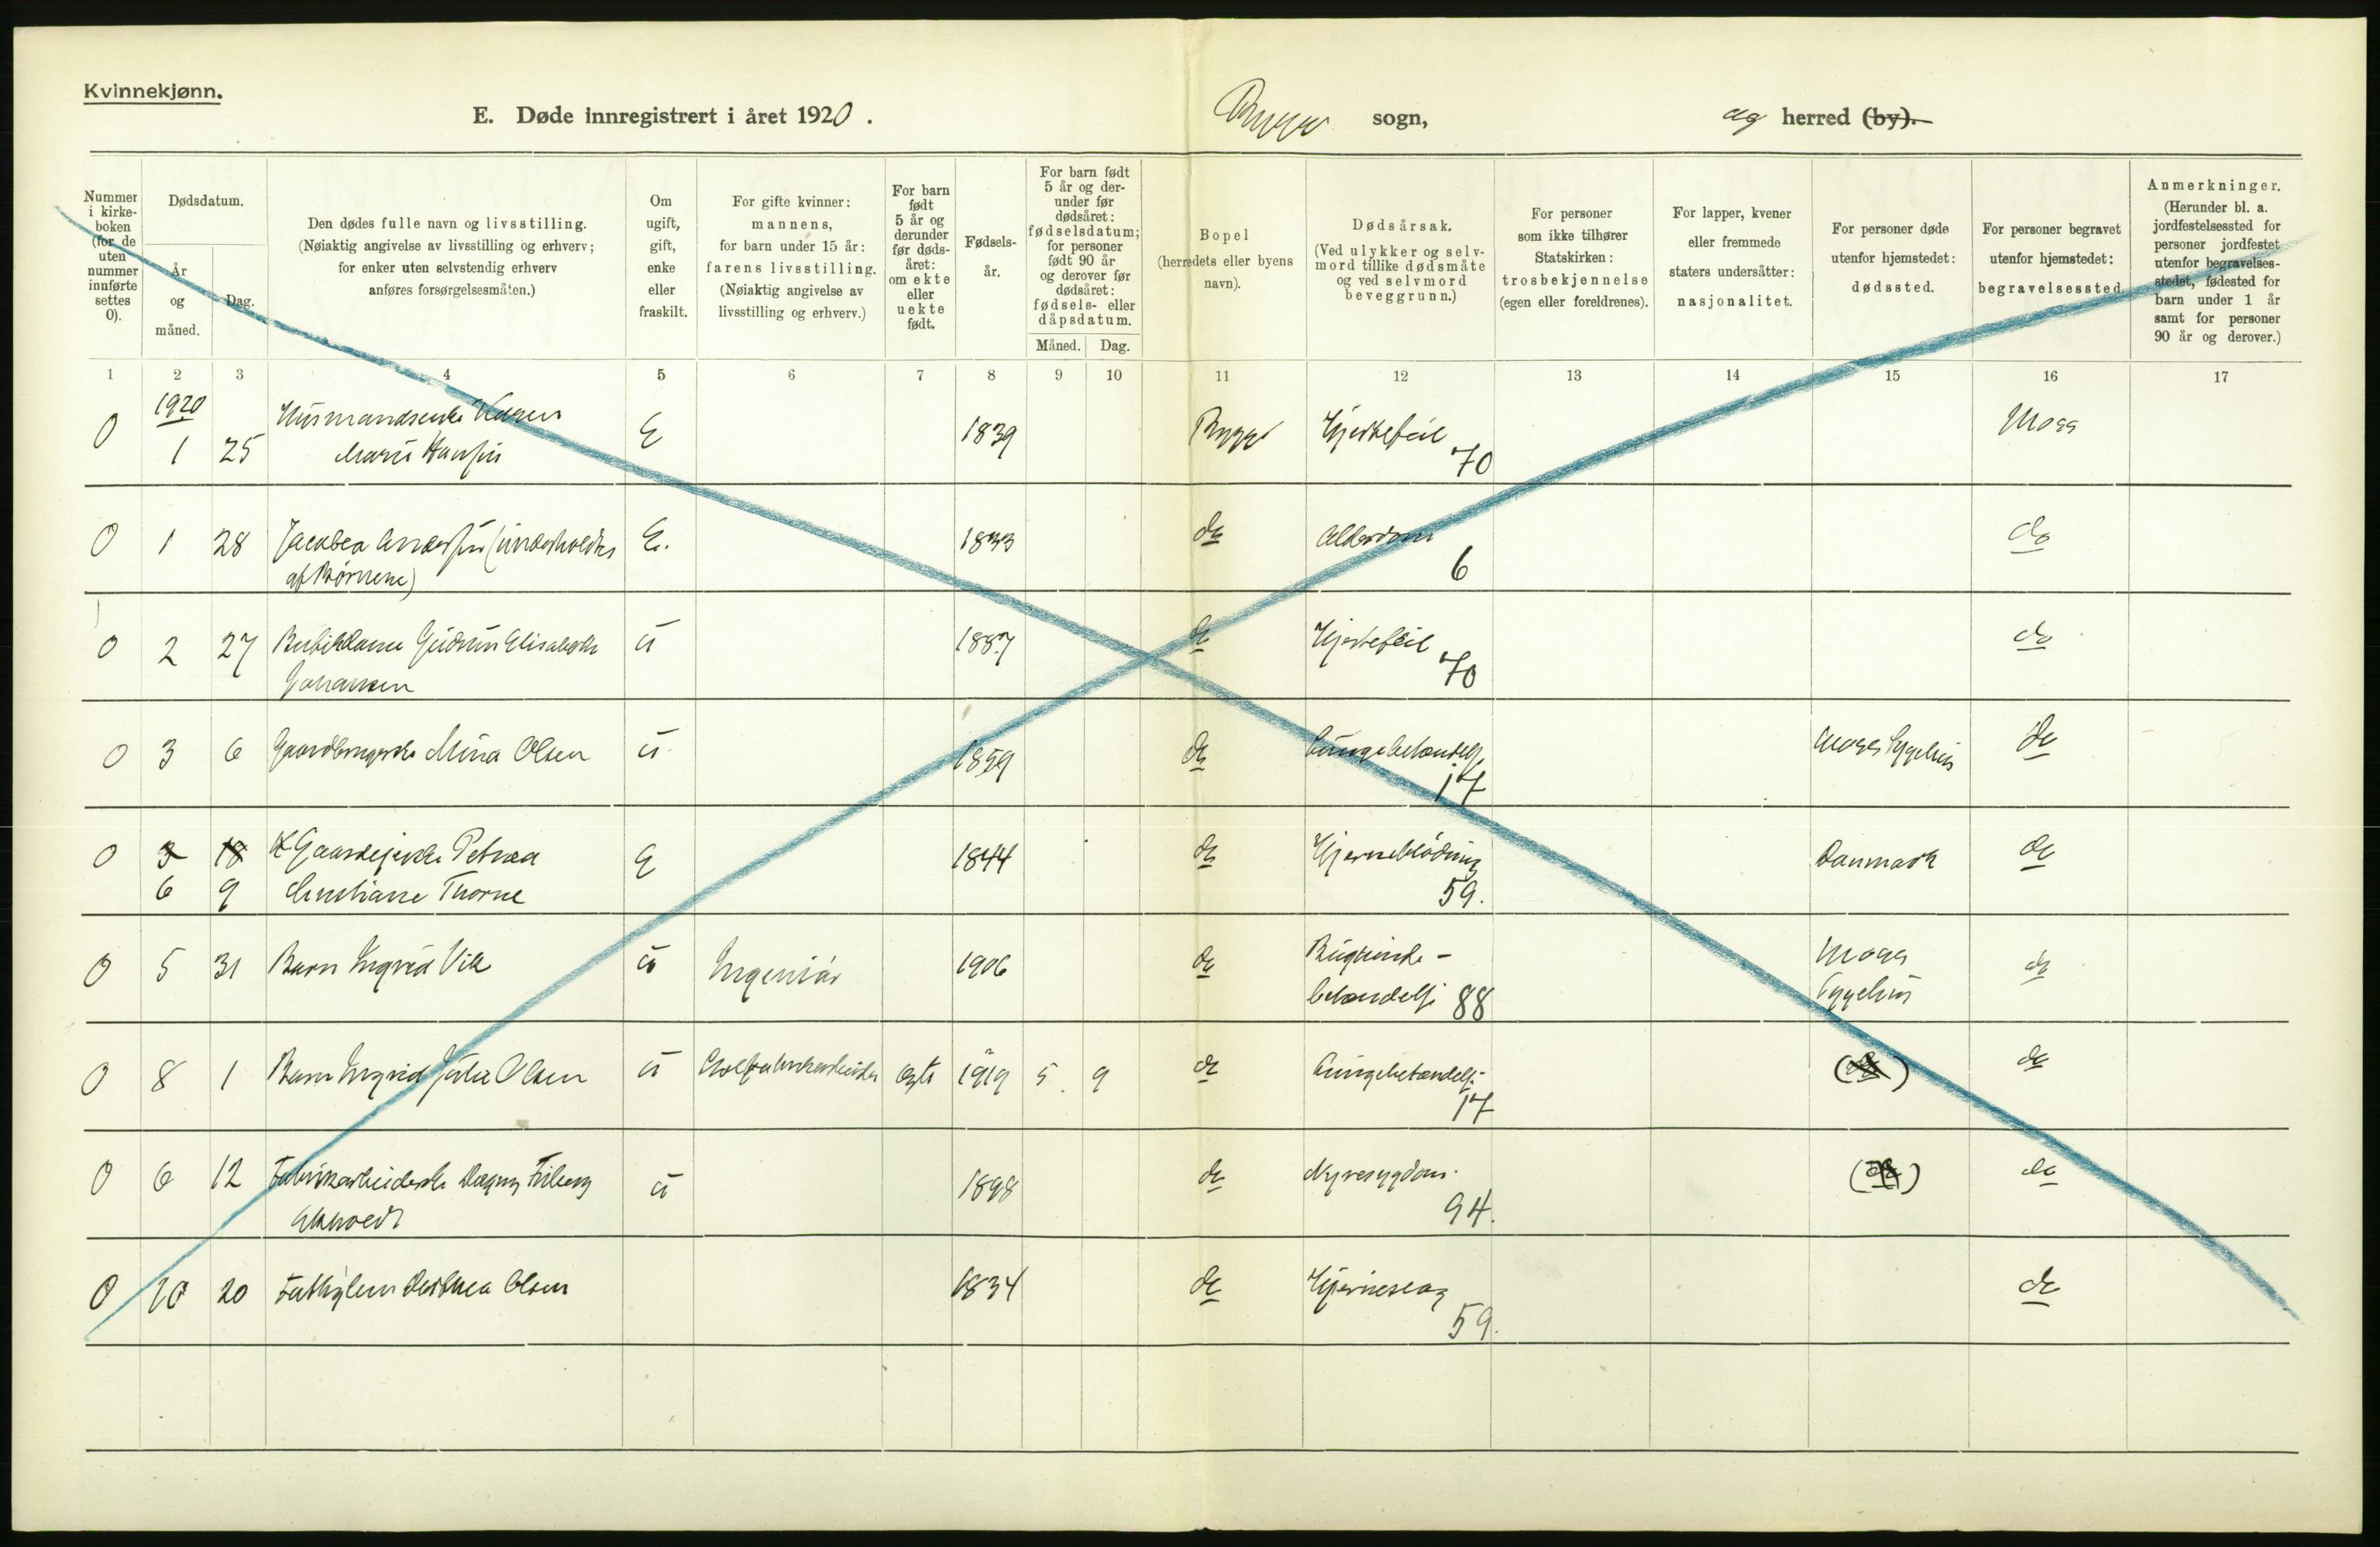 Kvinnekjønn.
E. Døde innregistrert i året 1920.
Rygge sogn,
og herred (by).
Nummer i kirkeboken (for de uten nummer innførte settes 0).
Dødsdatum.
År og måned.
Dag.
Den dødes fulle navn og livsstilling.
(Nøiaktig angivelse av livsstilling og erhverv;
for enker uten selvstendig erhverv
anføres forsørgelsesmåten.)
Om ugift, gift, enke eller fraskilt.
For gifte kvinner:
mannens,
for barn under 15 år:
farens livsstilling.
(Nøiaktig angivelse av
livsstilling og erhverv.)
For barn født 5 år og derunder før dødsåret: om ekte eller uekte født.
Fødselsår.
For barn født 5 år og derunder før dødsåret: fødselsdatum; for personer født 90 år og derover før dødsåret: fødsels- eller dåpsdatum.
Måned. Dag.
Bopel
(herredets eller byens
navn).
Dødsårsak.
(Ved ulykker og selvmord tillike dødsmåte og ved selvmord beveggrunn.)
For personer
som ikke tilhører
Statskirken:
trosbekjennelse
(egen eller foreldrenes).
For lapper, kvener
eller fremmede
staters undersåtter:
nasjonalitet.
For personer døde
utenfor hjemstedet:
dødssted.
For personer begravet
utenfor hjemstedet:
begravelsessted.
Anmerkninger.
(Herunder bl. a.
jordfestelsessted for
personer jordfestet
utenfor begravelses-
stedet, fødested for
barn under 1 år
samt for personer
90 år og derover.)
1 2 3 4 5 6 7 8 9 10 11 12 13 14 15 16 17
1920
0 1 25 Husmandsenke Karen E 1839 Rygge Hjertefeil Moss
Marie Hansen 70
0 1 28 Jacobea Andersen (underholdes E. 1833 do Alderdom do
af Børnene) 6
0 2 27 Butikdame Gudrun Elisabeth u 1887 do Hjertefeil do
Johansen 70
0 3 6 Gaardbrugerske Mina Olsen u 1859 do Lungebetændelse Moss Sygehus do
17
0 3 18 Gaardejerske Petrea E 1844 do Hjerneblødning Danmark do
6 9 Christiane Thorne 59.
0 5 31 Barn Ingrid Vik u Ingeniør 1906 do Bughinde- Moss do
betændelse 88 Sygehus
0 8 1 Barn Ingrid Julie Olsen u ekte 1919 5 9 do Lungebetændelse (do) do
17
0 6 12 Fabrikarbeiderske Dagny Friberg u 1898 do Nyresygdom. do
94.
0 10 20 Fattiglem Dorthea Olsen 1834 do Hjerneslag do
59.